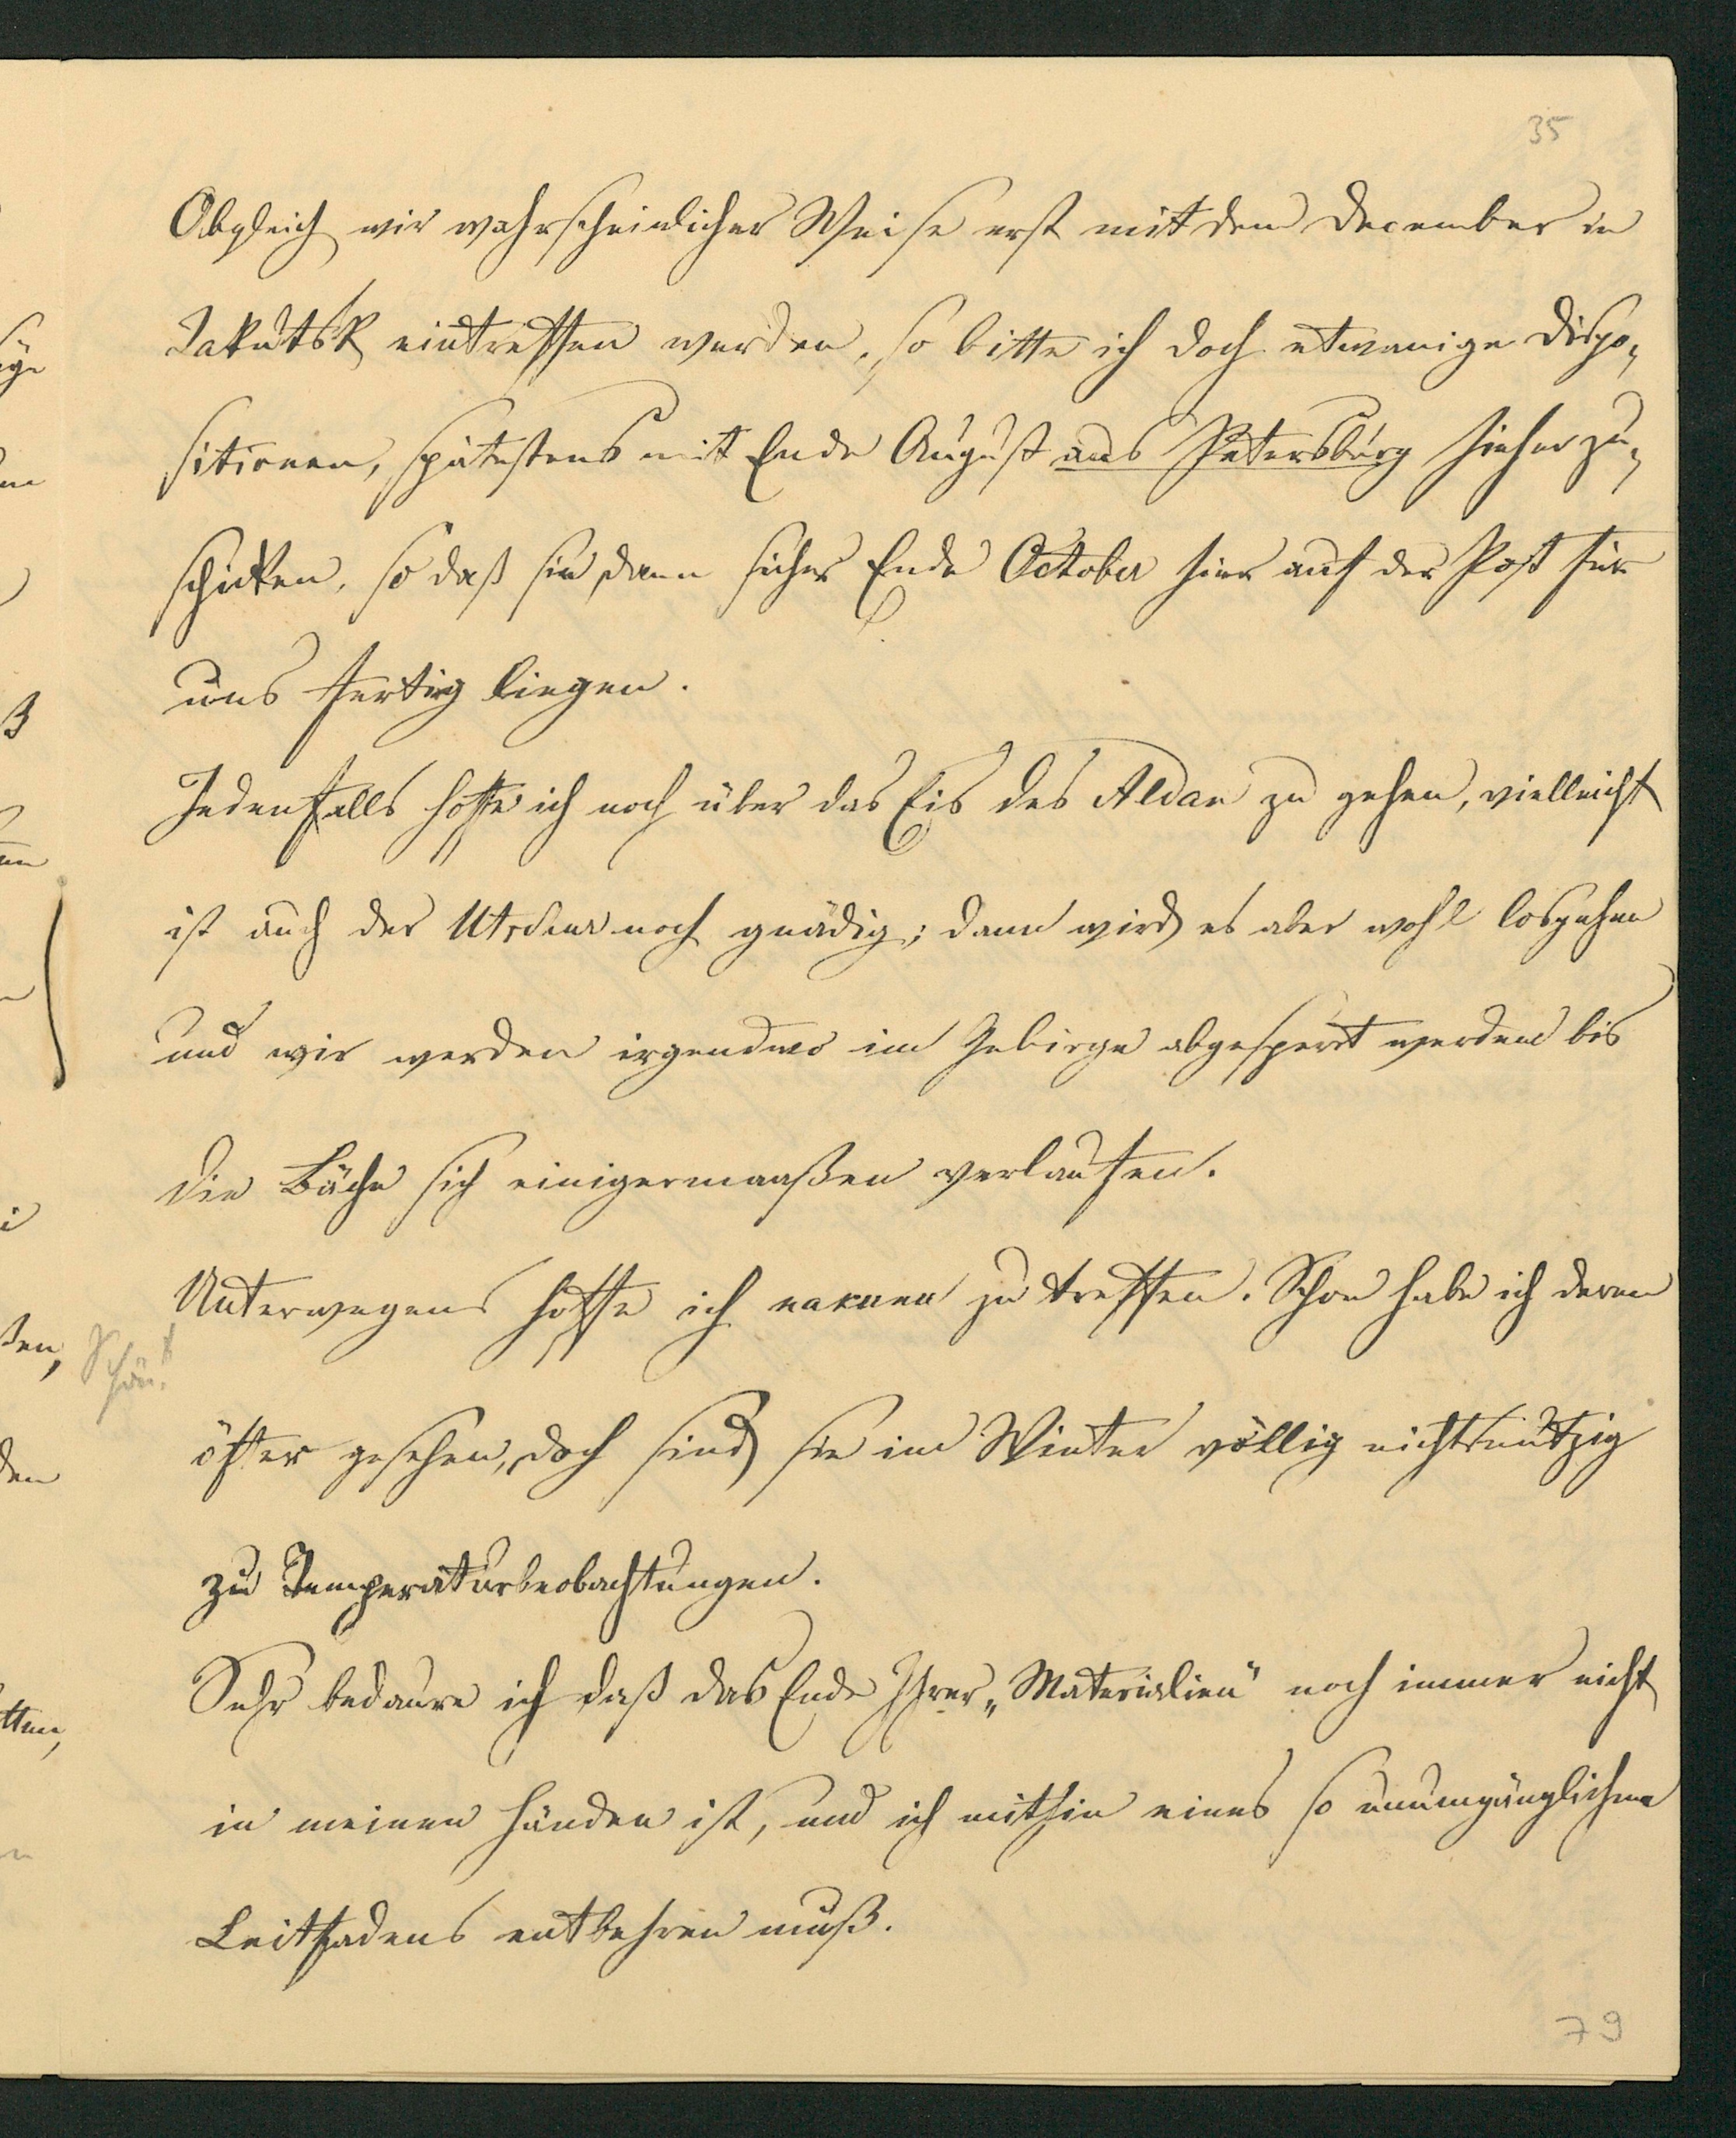 35
Obgleich wir wahrscheinlicher Weise erst mit dem December in
Jakutsk eintreffen werden, so bitte ich doch etwanige Dispo-
sitionen, spätestens mit Ende August aus Petersburg hieher zu-
schicken, so daß sie dann sicher Ende October hier auf der Post für
uns fertig liegen.
Jedenfalls hoffe ich noch über das Eis des Aldan zu gehen, vielleicht
ist auch der noch gnädig; dann wird es aber wohl losgehen
und wir werden irgendwo im Gebirge abgesperrt werden bis
die Bäche sich einigermaaßen verlaufen.
Unterwegens hoffe ich zu treffen. Schon habe ich deren
Schön!
öfter gesehen, doch sind sie im Winter völlig nichtsnutzig
zu Temperaturbeobachtungen.
Sehr bedaure ich daß das Ende Ihrer „Materialien“ noch immer nicht
in meinen Händen ist, und ich mithin eines so unumgänglichen
Leitfadens entbehren muß.
79